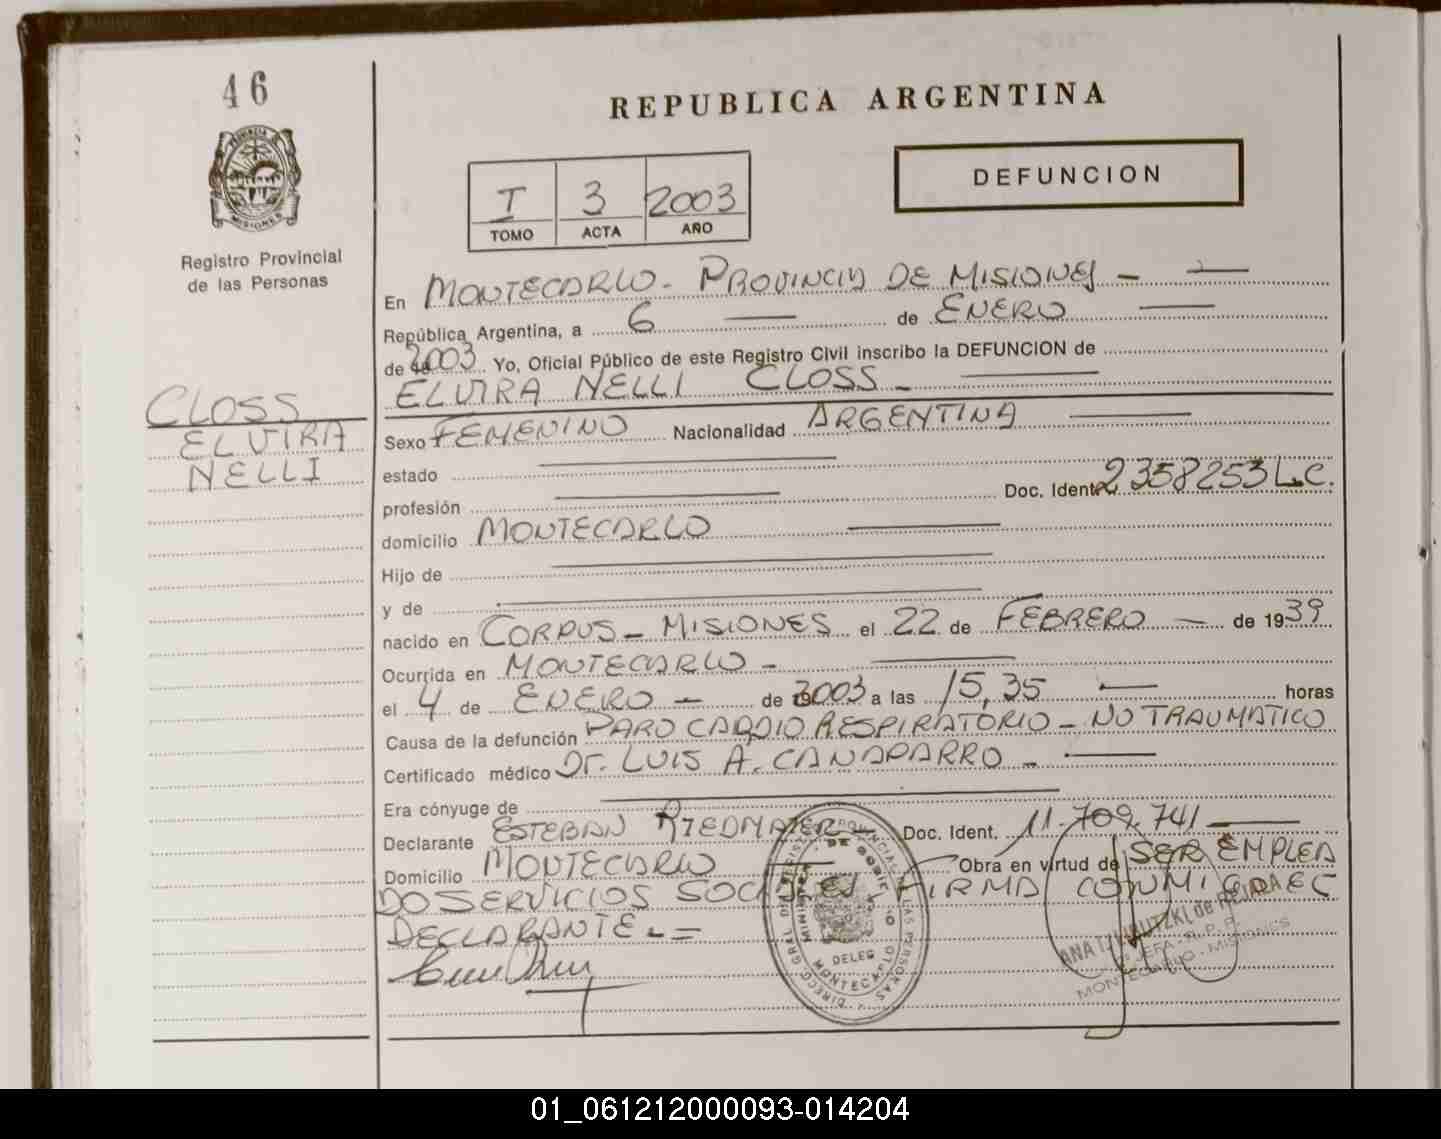 46
PROVINCIA DE
MISIONES
Registro Provincial
de las Personas
CLOSS
ELVIRA
NELLI
REPUBLICA ARGENTINA
DEFUNCION
I 3 2003
TOMO ACTA AÑO
En MONTECARLO - PROVINCIA DE MISIONES -
República Argentina, a 6 de ENERO
de 2003 Yo, Oficial Público de este Registro Civil inscribo la DEFUNCION de
ELVIRA NELLI CLOSS -
Sexo FEMENINO Nacionalidad ARGENTINA
estado
profesión Doc. Ident. 2358253 L.C.
domicilio MONTECARLO
Hijo de
y de
nacido en CORPUS - MISIONES el 22 de FEBRERO - de 1939
Ocurrida en MONTECARLO -
el 4 de ENERO - de 2003 a las 15,35 horas
Causa de la defunción PARO CARDIO RESPIRATORIO - NO TRAUMATICO
Certificado médico Dr. LUIS A. CANAPARRO -
Era cónyuge de
Declarante ESTEBAN RIEDMAIER - Doc. Ident. 11.709.741
Domicilio MONTECARLO Obra en virtud de SER EMPLEA
DO SERVICIOS SOCIALES, FIRMA CONMIGO EL
DECLARANTE. - =
DELEG
MONTECARLO
ANA de
JEFA - R. P. P.
MONTECARLO - MISIONES
01_061212000093-014204